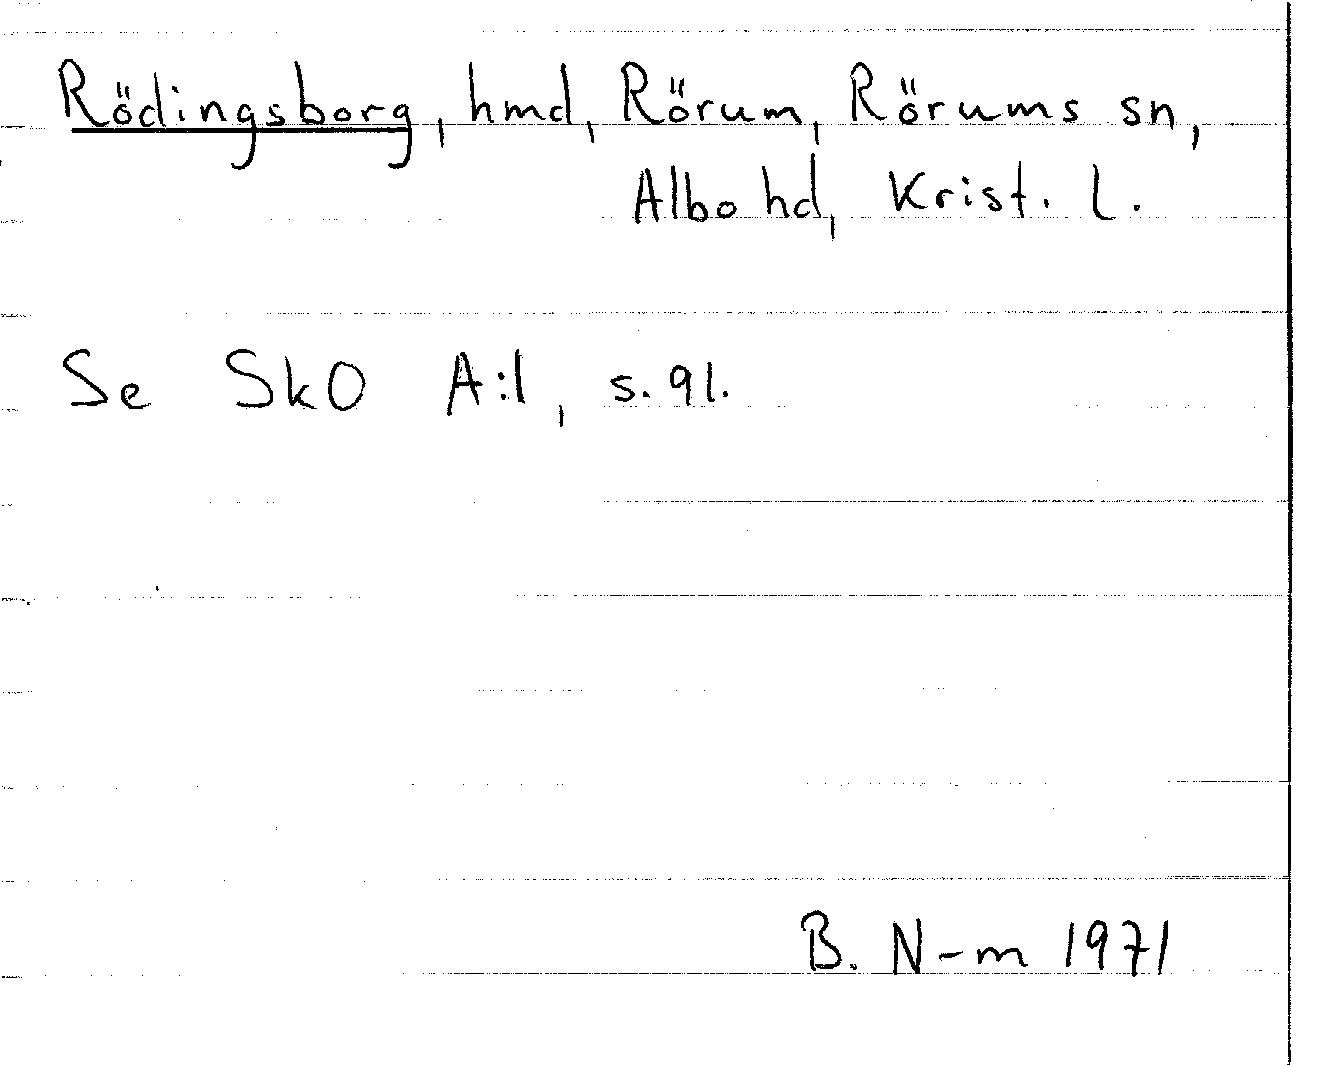 Rödingsborg, hmd, Rörum, Rörums sn,
Albo hd, Krist. l.
Se SkO A:1, s. 91.
B. N-m 1971